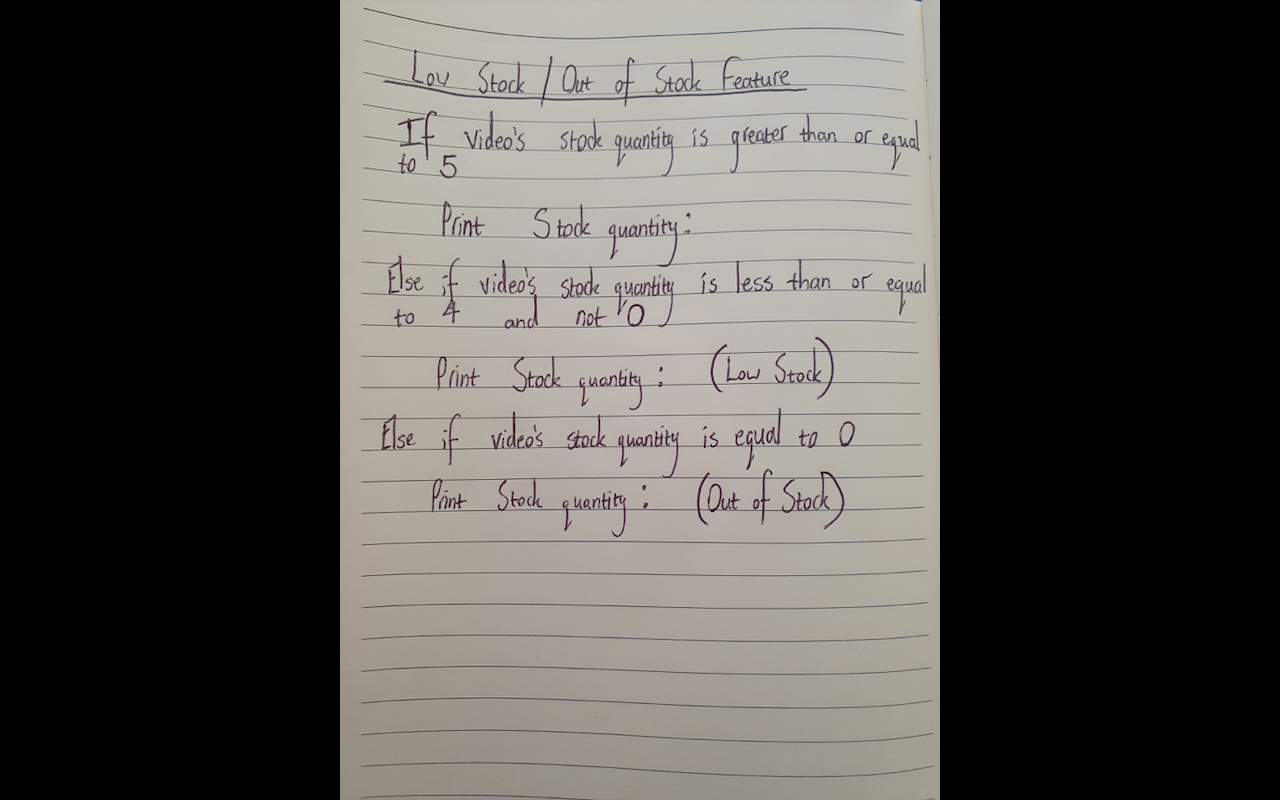 Low Stock / Out of Stock Feature
If video's stock quantity is greater than or equal
to 5
Print Stock quantity:
Else if video's stock quantity is less than or equal
to 4 and not 0
Print Stock quantity: (Low Stock)
Else if video's stock quantity is equal to 0
Print Stock quantity: (Out of Stock)